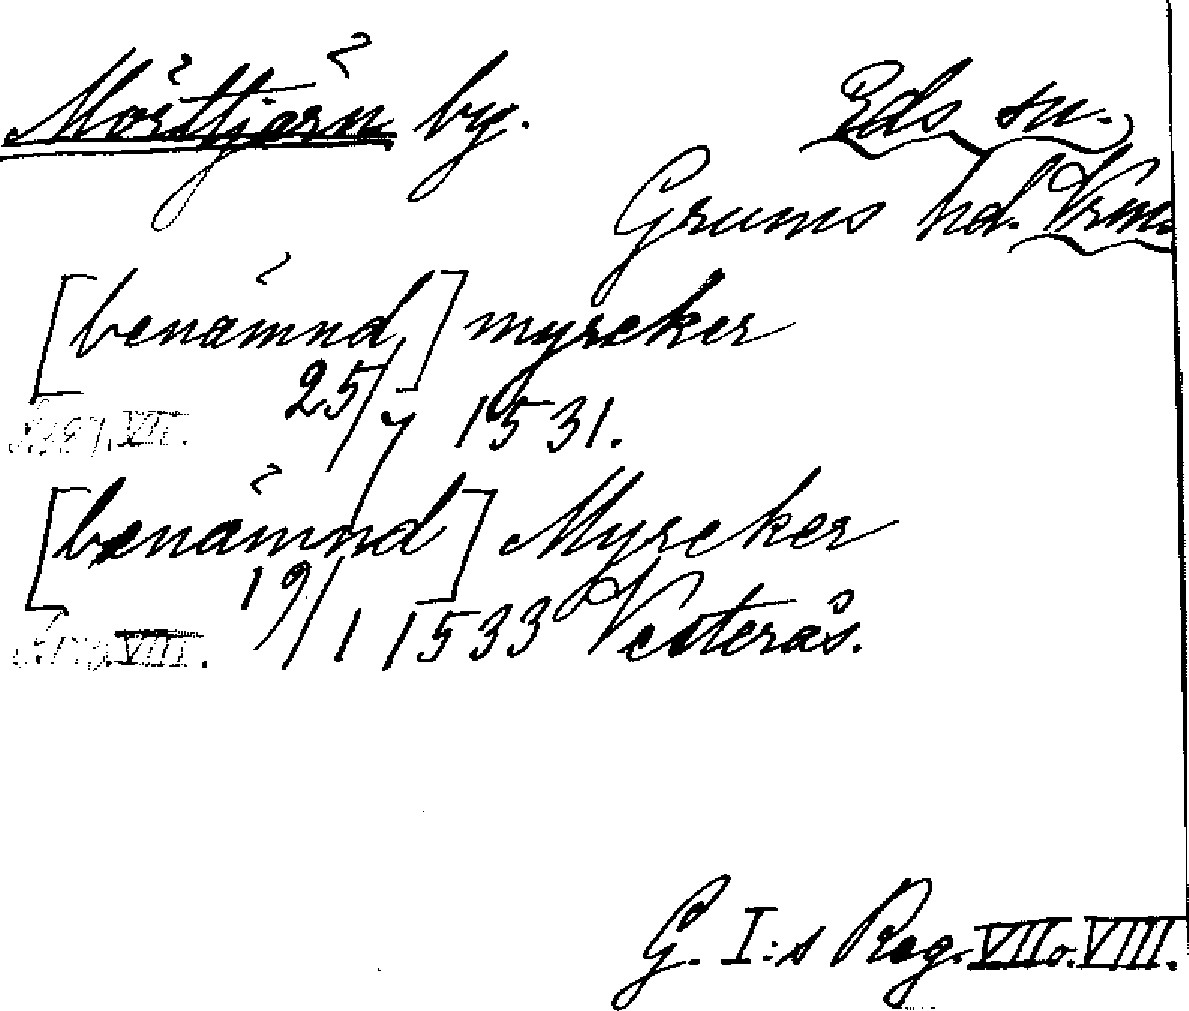 Mörttjärn by. Eds sn.
Grums hd. Vrm.
[benämnd] myrcker
25/7 1531.
VII.
[benämnd] Myrcker
19/1 1533 Vesterås.
VIII.
G. I:s Reg. VII o. VIII.